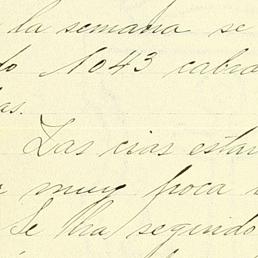 la semana se
do 1043 cabra
as.
Las cias estan
muy poca
Se ha seguido